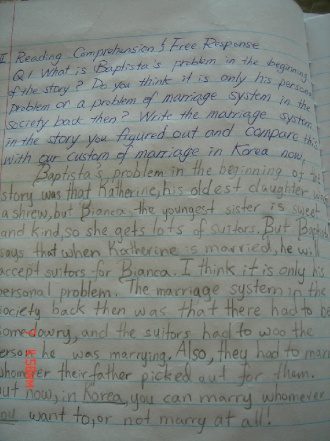 I Reading Comprehension & Free Response
Q1 What is Baptista's problem in the beginning
of the story? Do you think it is only his personal
problem or a problem of marriage system in the
society back then? Write the marriage system
in the story you figured out and compare this
with our custom of marriage in Korea now.
Baptista's problem in the beginning of the
story was that Katherine, his oldest daughter was
a shrew, but Bianca, the youngest sister is sweet
and kind, so she gets lots of suitors. But Baptista
says that when Katherine is married, he will
accept suitors for Bianca. I think it is only his
personal problem. The marriage system in the
society back then was that there had to be
some dowry, and the suitors had to woo the
person he was marrying. Also, they had to marry
whomever their father picked out for them.
But now, in Korea, you can marry whomever
you want to, or not marry at all!